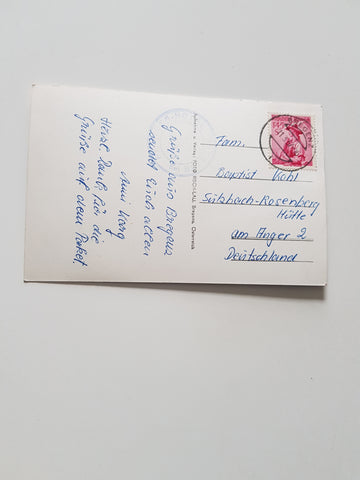 Grüße aus Bregenz
sendet Euch allen
Anni
Herzl. Dank für die
Grüße auf dem Paket
Aufnahme u. Verlag FOTO Bregenz, Österreich
Fam.
Baptist Kohl
Sulzbach-Rosenberg
Hütte
am Anger 2
Deutschland